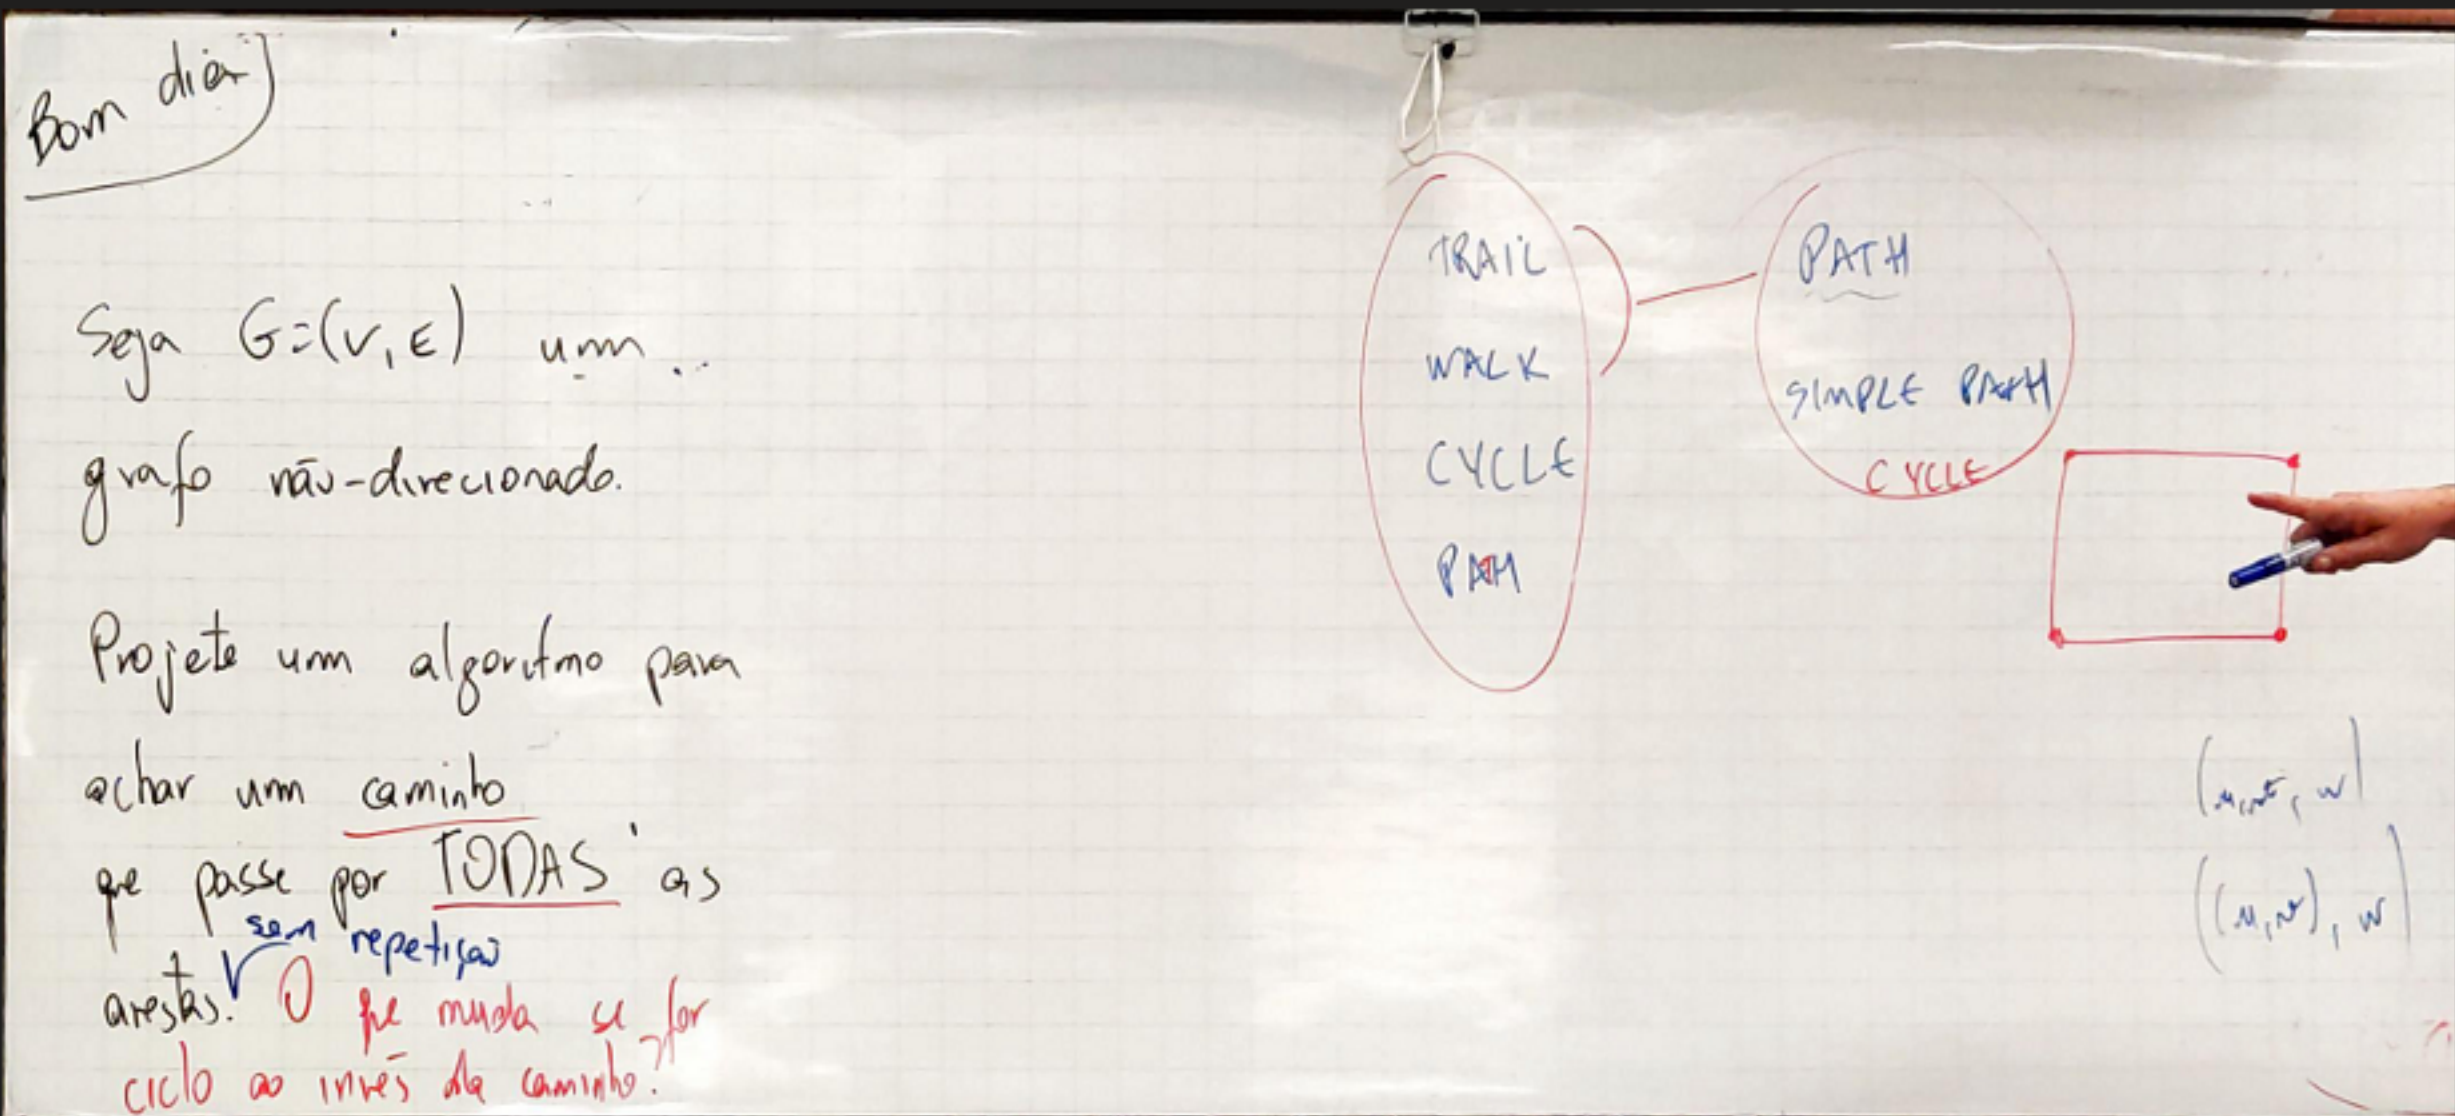 Bom dia
Seja G=(V,E) um
grafo não-direcionado.
Projete um algoritmo para
achar um caminho
que passe por TODAS as
sem repetição
arestas. O que muda se for
ciclo ao invés de caminho?
TRAIL
WALK
CYCLE
PATH
PATH
SIMPLE PATH
CYCLE
(u,v, w)
((u,v), w)